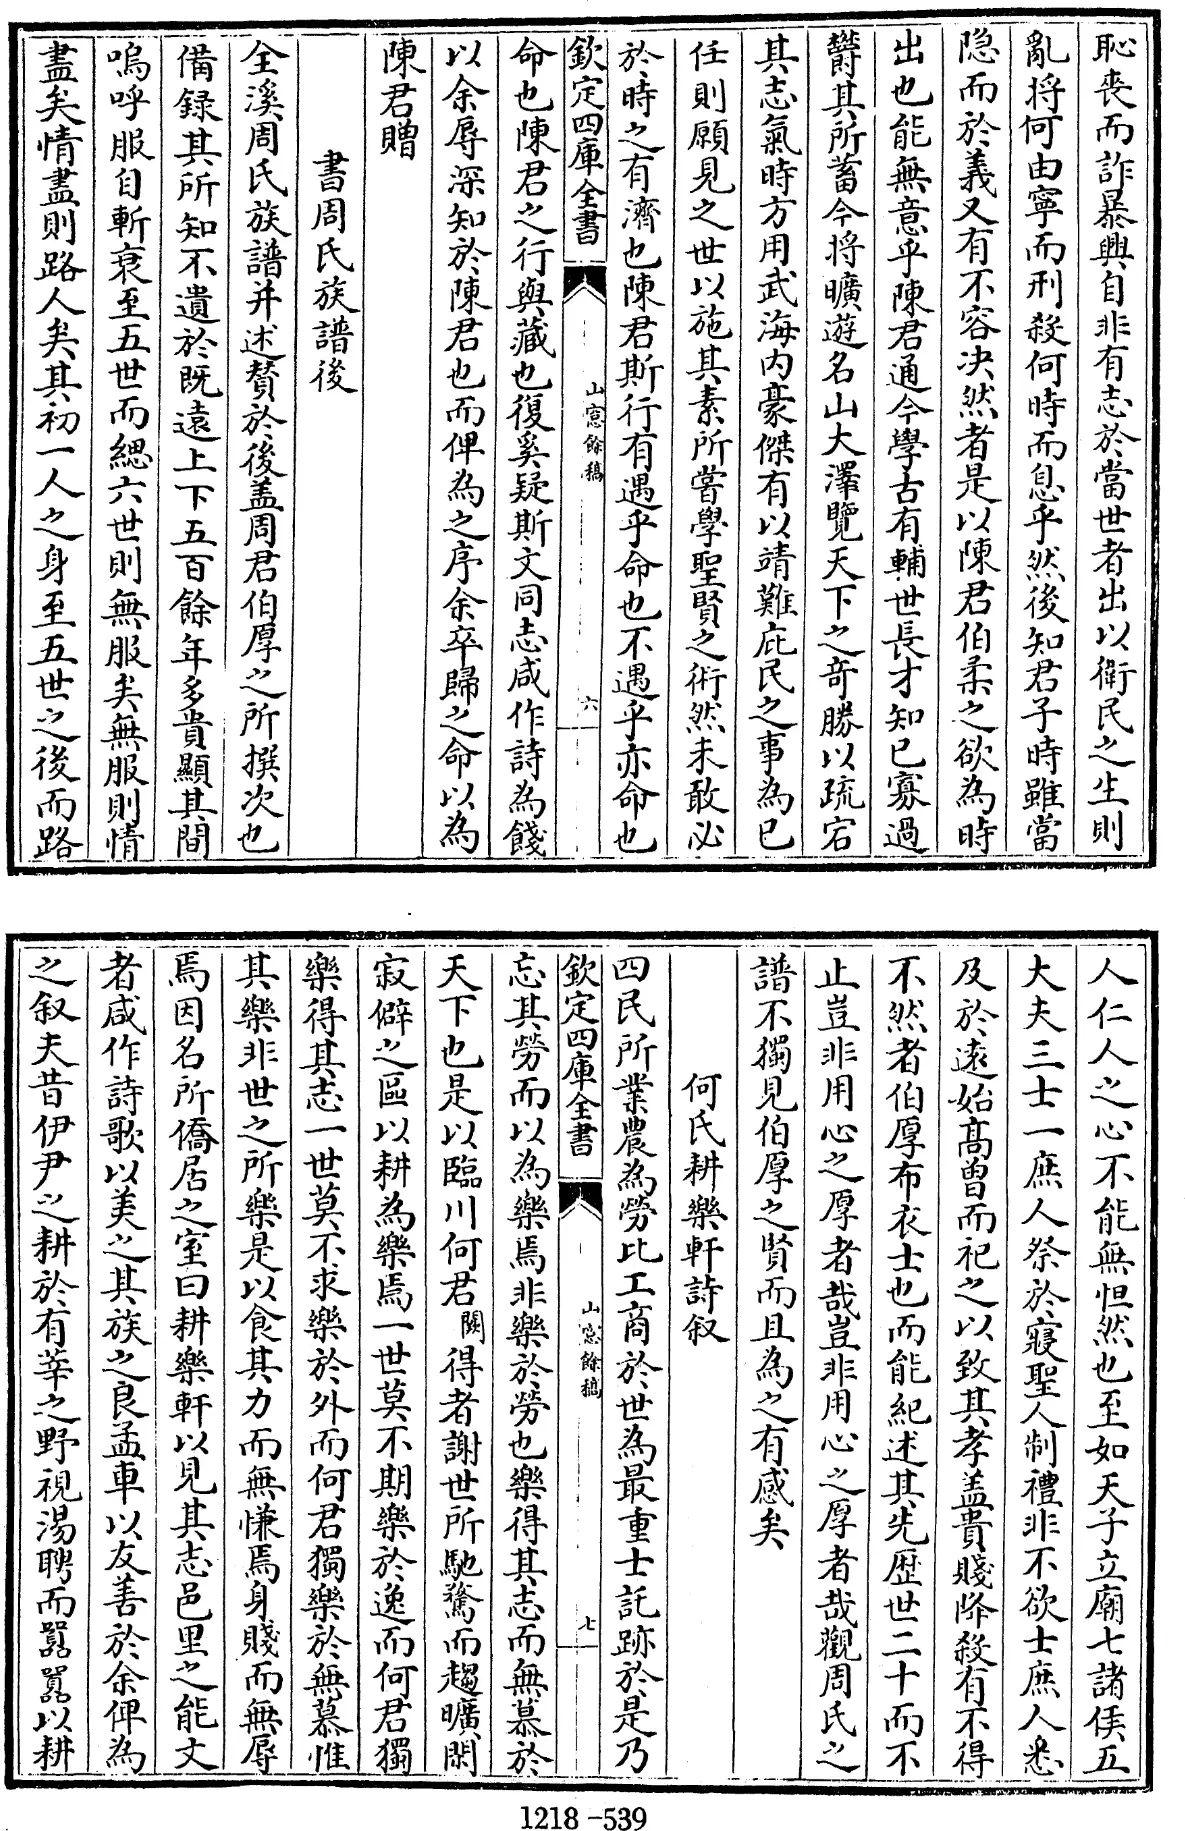 恥喪而詐暴興自非有志於當世者出以衛民之生則
亂將何由寧而刑殺何時而息乎然後知君子時雖當
隐而於義又有不容决然者是以陳君伯柔之欲為時
出也能無意乎陳君通今學古有輔世長才知已寡過
欝其所蓄今將曠遊名山大澤覽天下之竒勝以疏宕
其志氣時方用武海内豪傑有以靖難庇民之事為已
任則願見之世以施其素所嘗學聖賢之術然未敢必
於時之有濟也陳君斯行有遇乎命也不遇乎亦命也
欽定四庫全書
山窓餘稿
六
命也陳君之行與藏也復奚疑斯文同志咸作詩為餞
以余辱深知於陳君也而俾為之序余卒歸之命以為
陳君贈
書周氏族譜後
全溪周氏族譜并述賛於後盖周君伯厚之所撰次也
備録其所知不遺於既遠上下五百餘年多貴顯其間
嗚呼服自斬衰至五世而緦六世則無服矣無服則情
盡矣情盡則路人矣其初一人之身至五世之後而路
人仁人之心不能無怛然也至如天子立廟七諸侯五
大夫三士一庶人祭於寢聖人制禮非不欲士庶人悉
及於遠始髙曽而祀之以致其孝盖貴賤降殺有不得
不然者伯厚布衣士也而能紀述其先歴世二十而不
止豈非用心之厚者哉豈非用心之厚者哉觀周氏之
譜不獨見伯厚之賢而且為之有感矣
何氏耕樂軒詩叙
四民所業農為勞比工商於世為最重士託跡於是乃
欽定四庫全書
山窓餘稿
七
忘其勞而以為樂焉非樂於勞也樂得其志而無慕於
天下也是以臨川何君闕得者謝世所馳騖而趨曠閑
寂僻之區以耕為樂焉一世莫不期樂於逸而何君獨
樂得其志一世莫不求樂於外而何君獨樂於無慕惟
其樂非世之所樂是以食其力而無慊焉身賤而無辱
焉因名所僑居之室曰耕樂軒以見其志邑里之能文
者咸作詩歌以美之其族之良孟車以友善於余俾為
之叙夫昔伊尹之耕於有莘之野視湯聘而囂囂以耕
1218-539